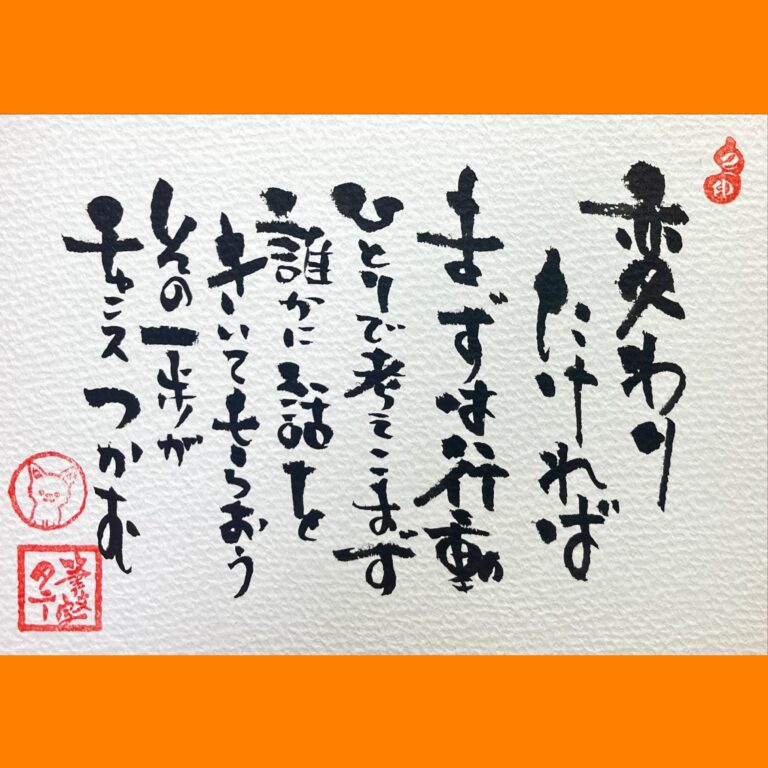 変わり
たければ
まずは行動
ひとりで考えこまず
誰かに話を
きいてもらおう
その一歩が
チャンスつかむ